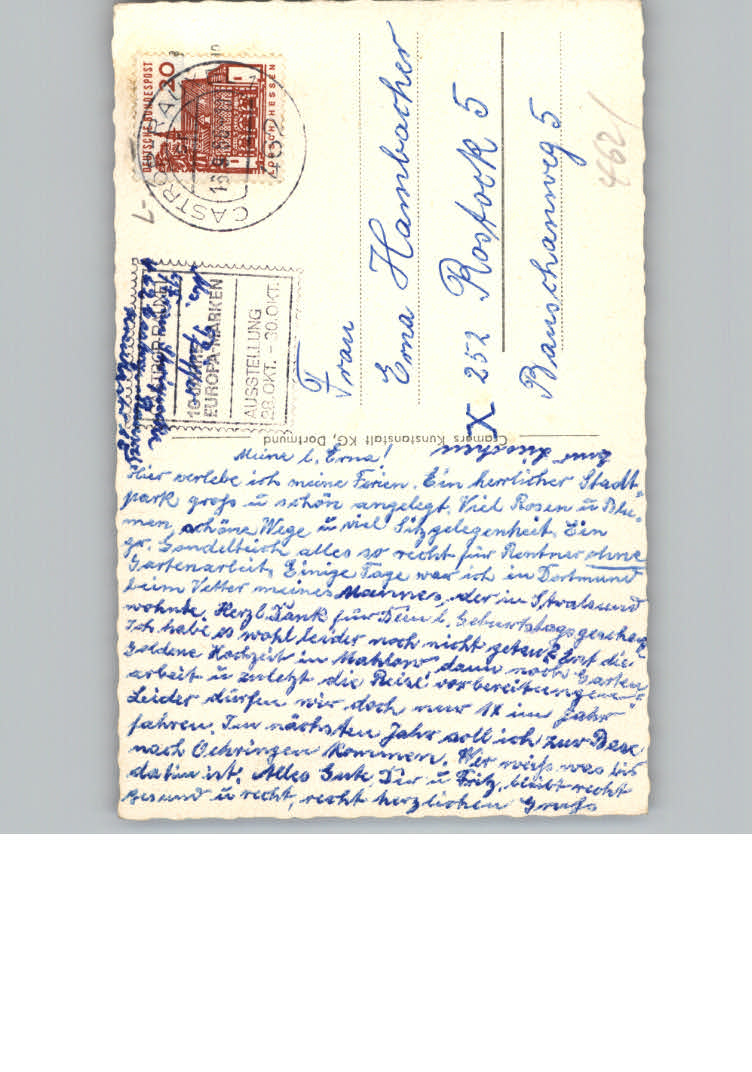 DEUTSCHE BUNDESPOST
20
LORSCH HESSEN
CASTROP-RAUXEL
462
EUROPA-MARKEN
AUSSTELLUNG
28. OKT. – 30. OKT.
Frau
Erna Hambacher
X 252 Rostock 5
Bauschanweg 5
462/
Cramers Kunstanstalt KG, Dortmund
Meine l. Erna!
Hier verlebe ich meine Ferien. Ein herrlicher Stadt-
park groß u schön angelegt. Viel Rosen u Blu-
men, schöne Wege u viel Sitzgelegenheit. Ein
gr. Gondelteich alles so recht für Rentner ohne
Gartenarbeit. Einige Tage war ich in Dortmund
beim Vetter meines Mannes, der in Stralsund
wohnte. Herzl. Dank für Dein l. Geburtstagsgeschenk
Ich habe es wohl leider noch nicht getan? Erst die
Goldene Hochzeit in Mahlow dann noch Garten-
arbeit u zuletzt die Reise vorbereitungen.
Leider dürfen wir doch nur 1x im Jahr
fahren. Im nächsten Jahr soll ich zur Base
nach Oehringen kommen. Wer weiß was bis
dahin ist! Alles Gute Dir u Fritz, bleibt recht
gesund u recht, recht herzlichen Gruß